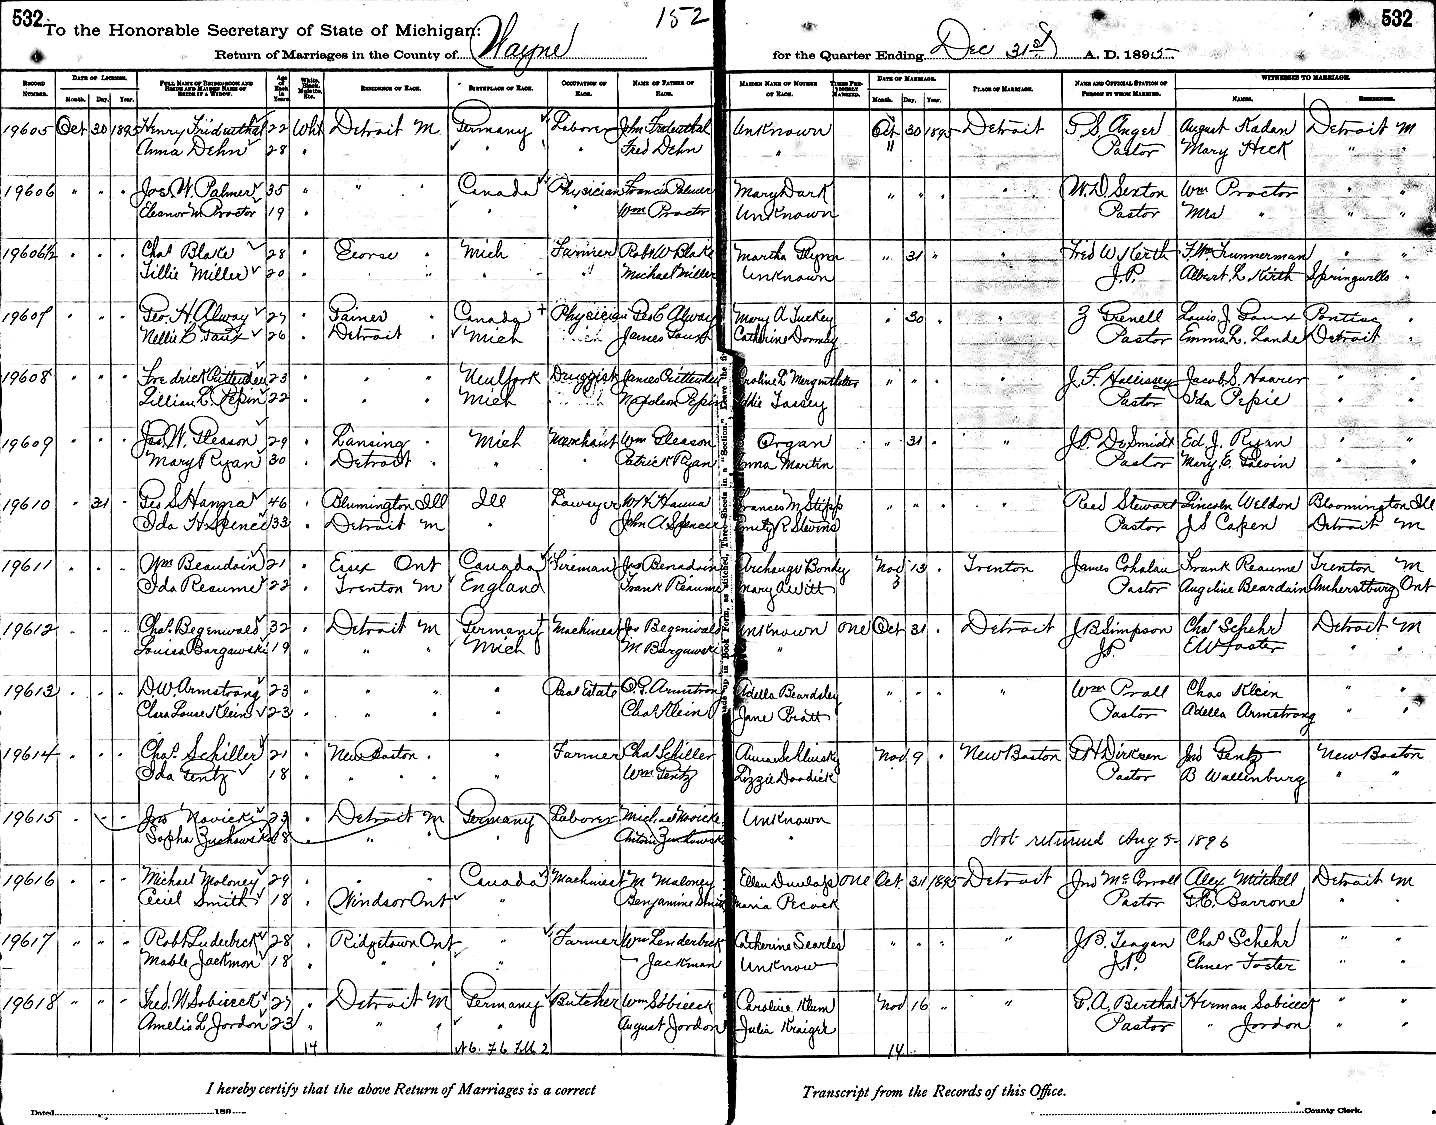 532 To the Honorable Secretary of State of Michigan: 152 532
Return of Marriages in the County of Wayne for the Quarter Ending Dec 31st A. D. 1895
RECORD NUMBER. DATE OF LICENSE. Month. Day. Year. FULL NAME OF BRIDEGROOM AND BRIDE AND MAIDEN NAME OF BRIDE IF A WIDOW. Age of Each in Years. White, Black, Mulatto, Etc. RESIDENCE OF EACH. BIRTHPLACE OF EACH. OCCUPATION OF EACH. NAME OF FATHER OF EACH. MAIDEN NAME OF MOTHER OF EACH. TIMES PREVIOUSLY MARRIED. DATE OF MARRIAGE. Month. Day. Year. PLACE OF MARRIAGE. NAME AND OFFICIAL STATION OF PERSON BY WHOM MARRIED. WITNESSES TO MARRIAGE. NAMES. RESIDENCE.
19605 Oct 30 1895 Henry Fridenthal 22 Whit Detroit M Germany Laborer John Fridenthal Unknown Oct 30 1895 Detroit P. S. Anger August Kadan Detroit M
Anna Dehn 28 " " " Fred Dehn " " Pastor Mary Heck " "
19606 " " " Jos. W. Palmer 35 " " " Canada Physician Francis Palmer Mary Dark " " " " W. D. Sexton Wm Proctor " "
Eleanor W. Proctor 19 " " " Wm Proctor Unknown Pastor Mrs " " "
19606½ " " " Chas Blake 28 " Ecorse " Mich Farmer Robt W Blake Martha Flynn " 31 " " Fred W. Kerth F. Wm. Trunnerman " "
Tillie Miller 20 " " " " " Michael Miller Unknown J.P. Albert L. Kerth Springwells "
19607 " " " Geo. H. Alway 27 " " Canada Physician Geo C Alway Mary A Tuckey " 30 " " Z Grenell Louis J. Faux Pontiac "
Nellie C. Faux 26 " Detroit " Mich James Faux Catherine Dormby Pastor Emma L. Lande Detroit "
19608 " " " Fredrick Crittenden 23 " " " New York Druggist James Crittenden Caroline L Mergenthaler " " " " J. F. Hallissey Jacob S. Haarer " "
Lillian L. Pepin 22 " " " Mich Napoleon Pepin Addie Tassey Pastor Ida Pepie " "
19609 " " " Jas. W. Gleason 29 " Lansing " Mich Merchant Wm Gleason Organ " 31 " " J. P. DeSmidt Ed. J. Ryan " "
Mary Ryan 30 " Detroit " " " Patrick Ryan Anna Martin Pastor Mary E. Galvin " "
19610 " 31 " Geo S. Hanna 46 " Blumington Ill Ill Lawyer W. H. Hanna Frances M Stipp " " " " Reed Stewart Lincoln Weldon Bloomington Ill
Ida H. Spencer 33 " Detroit M " John A. Spencer Emily R Stevens Pastor J S Capen Detroit M
19611 " " " Wm Beaudoin 21 " Essex Ont Canada Fireman Jno Beaudoin Archange Bondy Nov 13 " Trenton James Cohalan Frank Reaume Trenton M
Ida Reaume 22 " Trenton M England Frank Reaume Mary A Witt 3 Pastor Angeline Beardain Amherstburg Ont
19612 " " " Chas. Begenwald 32 " Detroit M Germany Machinest Jos Begenwald Unknown one Oct 31 " Detroit J. B Simpson Chas Schehr Detroit M
Louisa Bargawski 19 " " " Mich M Bargawski " J.P. E W Foster " "
19613 " " " D. W. Armstrong 23 " " " " Real Estate O. G. Armstrong Adella Beardsley " " " " Wm Prall Chas Klein " "
Clara Louse Klein 23 " " " " Chas Klein Jane Pratt Pastor Adella Armstrong " "
19614 " " " Chas. Schiller 21 " New Boston " Farmer Chas. Schiller Nov 9 " New Boston F. H. Dirksen Jno Gentz New Boston
Ida Gentz 18 " " " " Wm Gentz Lizzie Pastor B Wallenburg " "
19615 " " " Jno Novicki 23 " Detroit M Germany Laborer Michael Novicke Unknown
Sopha Zuchowski 18 " " Anton Zuchowski " Not returned Aug 5 1896
19616 " " " Michael Maloney 29 " " " Canada Machinest M Maloney Ellen Dunlap one Oct 31 1895 Detroit Jno McCorroll Alex Mitchell Detroit M
Aeciel Smith 18 " Windsor Ont " Benjamine Smith Maria Pecock Pastor F. C. Barrone " "
19617 " " " Robt Luderbeck 28 " Ridgetown Ont " Farmer Wm Lenderbeck Catherine Searles " " " " J. B. Teagan Chas Schehr " "
Mable Jackmon 18 " " " " Jackman Unknow J.P. Elmer Foster " "
19618 " " " Fred. W. Sobieeck 27 " Detroit M Germany Butcher Wm Sobieeck Caroline Klum Nov 16 " " C. A. Berthal Herman Sobieeck " "
Amelis L. Jordon 23 " " " " August Jordon Julia Kraigit Pastor " Jordon " "
14 N 6. F 6 F.M 2 14
I hereby certify that the above Return of Marriages is a correct Transcript from the Records of this Office.
Dated 189 County Clerk.